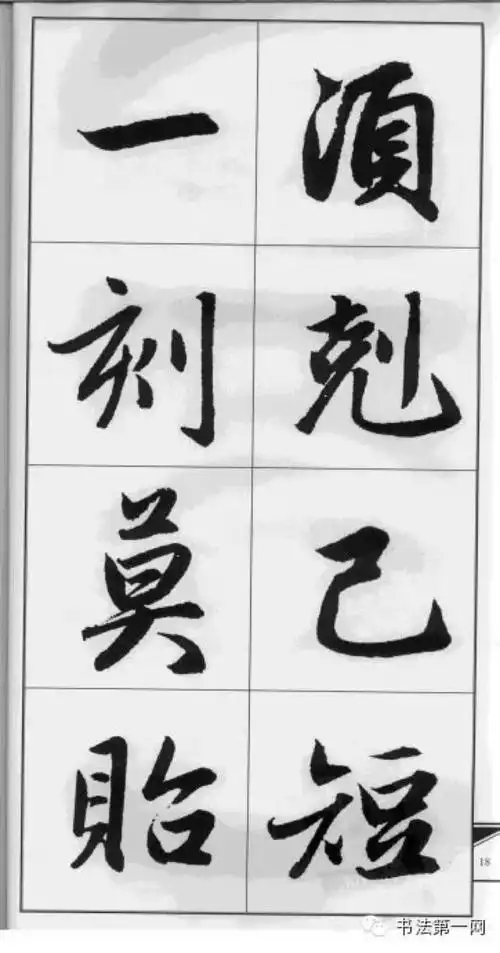 須剋己短
一刻莫貽
18
书法第一网